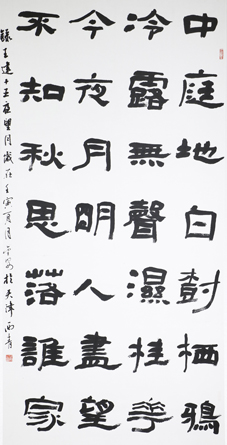 中庭地白樹栖鴉
冷露無聲濕桂華
今夜月明人盡望
不知秋思落誰家
錄王建十五夜望月歲在壬寅月於天津西青